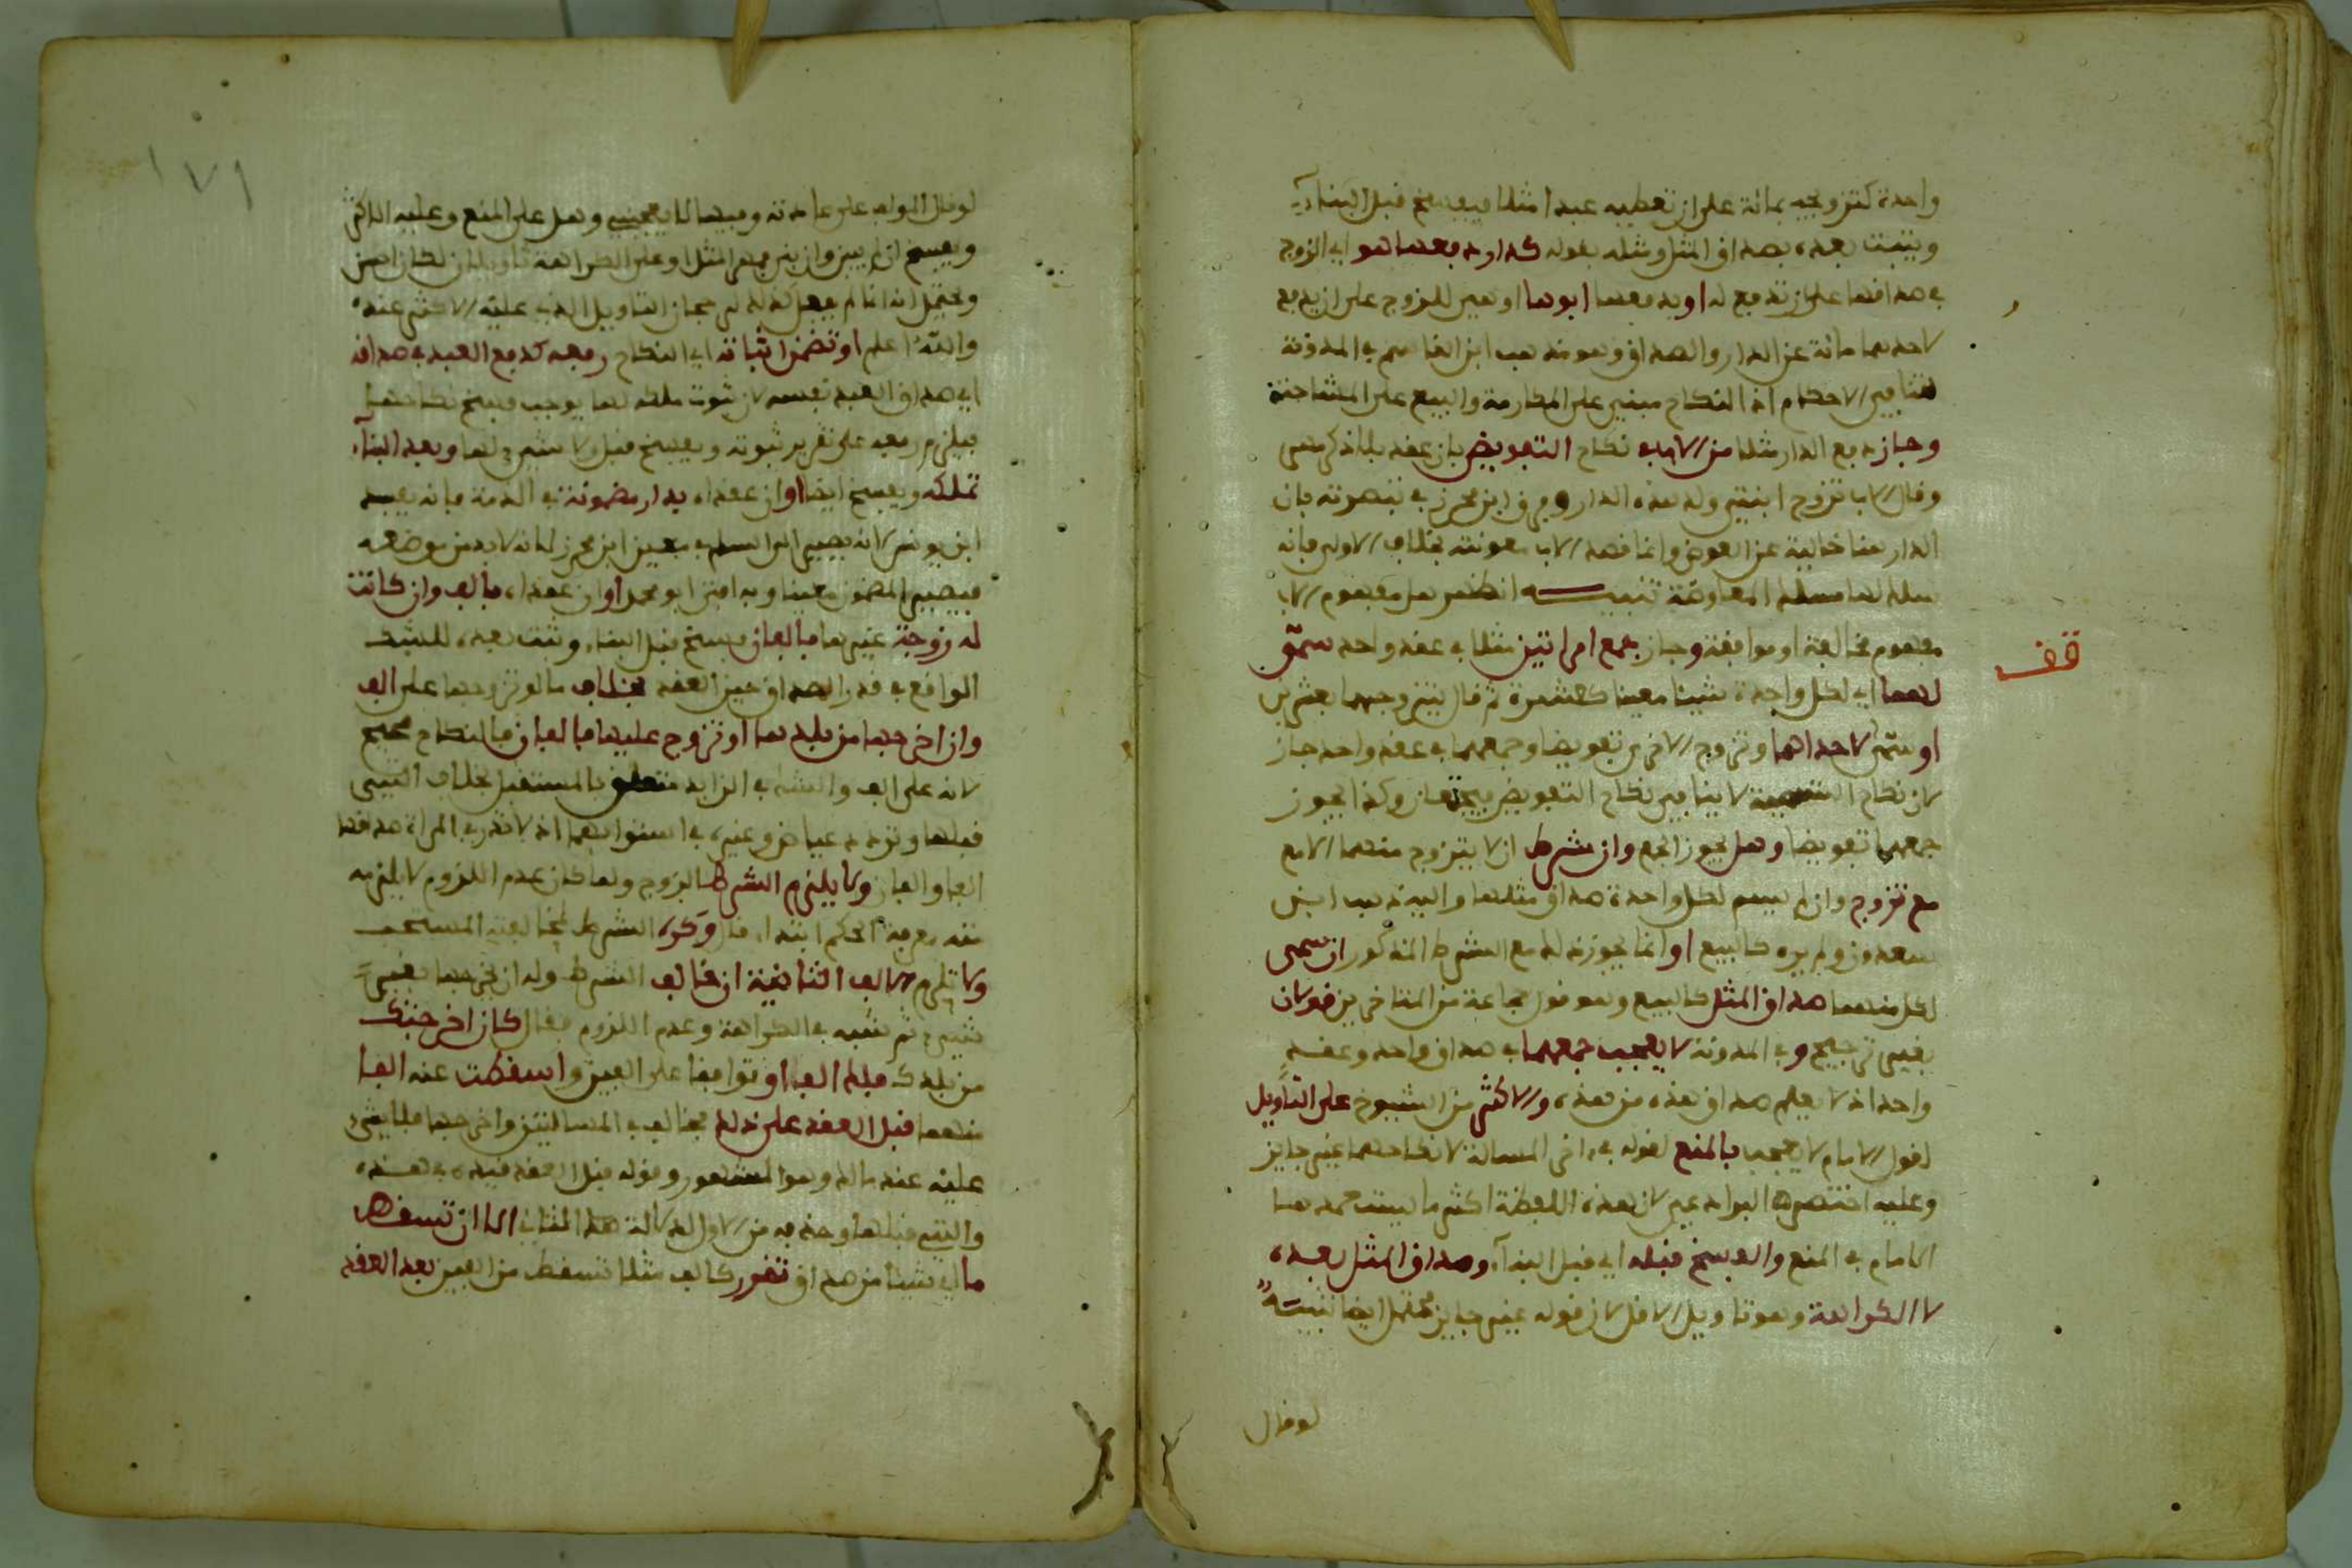 واحدة كتزويجه بمائة على ان تعطيه عبدا مثلا فيفسخ قبل البناء
ويثبت بعده بصداق المثل ومثله بقوله كدار دفعها هو اي الزوج
في صداقها على ان تدفع له او يدفعها ابوها او غير للزوج على ان يدفع
لاحدهما مائة عن الدار والصداق وهو مذهب ابن القاسم في المدونة
لتنافي الاحكام اذ النكاح مبني على المكارمة والبيع على المشاحنة
وجاز دفع الدار مثلا من الاب في نكاح التفويض بان عقد بلا ذكر مهر
وقال الاب تزوج ابنتي ولك هذه الدار وفرق ابن محرز في تبصرته بان
الدار هنا خالية عن العوض وانما قصد الاب معونته بخلاف الاولى فانه
سلك لها مسلك المعاوضة تنبيه انظر هل مفهوم الاب
مفهوم مخالفة او موافقة وجاز جمع امراتين مثلا في عقد واحد سمى
لهما اي لكل واحدة شيئا معينا كعشرة ثم قال تتزوجهما بعشرين
او سمى لاحداهما وتزوج الاخرى تفويضا وجمعهما في عقد واحد جاز
لان نكاح التسمية لا ينافي نكاح التفويض فيجتمعان وكذا يجوز
جمعهما تفويضا وهل يجوز الجمع وان شرط ان لا يتزوج منهما الامع
مع تزوج وان لم يسم لكل واحدة صداق مثلها واليه ذهب ابن
سعدون ولم يره كالبيع او انما يجوز ذلك مع الشرط المذكور ان سمى
لكل منهما صداق المثل كالبيع وهو قول جماعة من المتاخرين قولان
بغير ترجيح وفي المدونة لا يعجب جمعهما في صداق واحد وعقد
واحد اذ لا يعلم صداق هذه من هذه والاكثر من الشيوخ على التاويل
لقول الامام لا يعجب بالمنع لقوله في اخر المسالة لان نكاحهما غير جايز
وعليه اختصرها البرادعي لان هذه اللفظة اكثر ما يثبت عنده هنا
الامام في المنع والفسخ قبله اي قبل البناء وصداق المثل بعده
لا الكراهة وهو تاويل الاقل لان قوله غير جايز محتمل ايضا تنبيه
لو قال
قف
١٧٩
لو قال المولف على عادته وفيها لا يعجبني وهل على المنع وعليه الاكثر
ويفسخ ان لم يبن وان بنى فمهر المثل او على الكراهة تاويلان لكان احسن
ويحتمل انه انما لم يفعل كذلك لرجحان التاويل الذي عليه الاكثر عنده
والله اعلم او تضمن اثباته اي النكاح رفعه كدفع العبد في صداقه
اي صداق العبد نفسه لان ثبوت ملكه لها يوجب فسخ نكاحها
فيلزم رفعه على تقرير ثبوته ويفسخ قبل ولا شيء لها وبعد البناء
تملكه ويفسخ ايضا او ان عقداه بدار مضمونة في الذمة فانه يفسد
ابن يونس لانه يصير الى السلم في معين ابن محرز لانه لابد من موضعه
فيصير المضمون معينا وبه افتى ابو محمد او ان عقداه بالف وان كانت
له زوجة غيرها فالفان فسخ قبل البناء وثبت بعده للشك
الواقع في قدر الصداق حين العقد بخلاف ما لو تزوجها على الف
وان اخرجها من بلدها او تزوج عليها فالفان فالنكاح صحيح
لانه على الف والشك في الزايد متعلق بالمستقبل بخلاف التي
قبلها وتردد عياض وغيره في استوايهما اذ لا تدري المراة صداقها
الفا والفان ولا يلزم الشرط الزوج ولما كان عدم اللزوم لا يلزم
منه معرفة الحكم ابتداء قال وكره الشرط لمخالفة المستحب
ولا تلزم الالف الثانية ان خالف الشرط وله ان يخرجها بغير
شيء ثم شبه في الكراهة وعدم اللزوم فقال كان اخرجتك
من بلدك فلك الف او توافقا على الفين واسقطت عنه الفا
منهما قبل العقد على ذلك فخالف في المسالتين واخرجها فلا شيء
عليه عند مالك وهو المشهور وقوله قبل العقد قيد في هذه
والتي قبلها وحذف من الاول لدلالة هذا الثاني الا ان تسقط
ما اي شيئا من صداق تقرر كالف مثلا تسقط من الفين بعد العقد